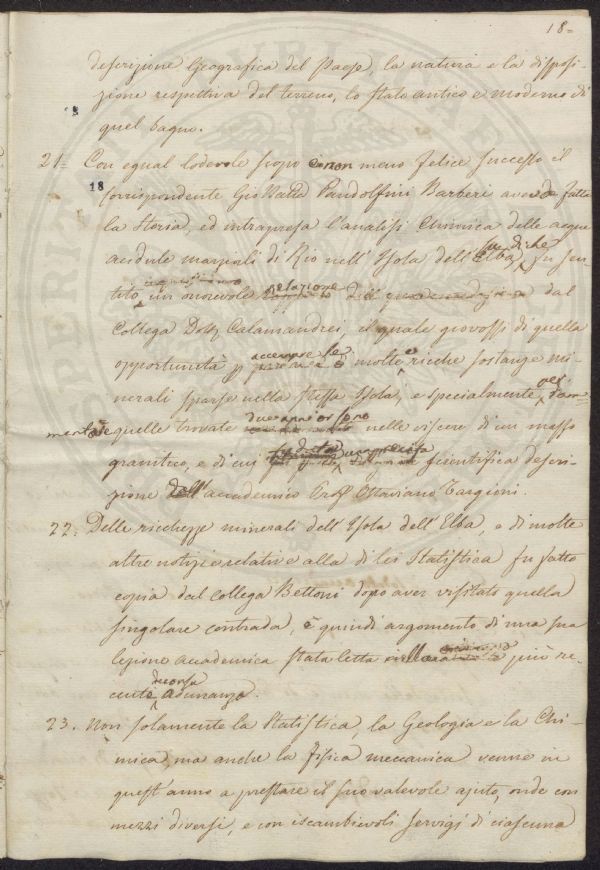 18=
descrizione Geografica del Paese, la natura e la disposi
zione respettiva del terreno, lo stato antico e moderno di
quel bagno.
21= Con egual lodevole scopo e non meno felice successo il
18
Corrispondente Gio Batta Pandolfini Barberi avendo fatta
la Storia, ed intrapresa l'analisi Chimica delle acque
acidule marziali di Rio nell'Isola dell'Elba, fu sen
tito un onorevole relazione dal
Collega Dott Calamandrei, il quale giovossi di quella
opportunità p accennare le molte e ricche sostanze mi
nerali sparse nella stessa Isola, e specialmente
quelle trovate due anni or sono nelle viscere di un masso
granitico, e di cui scientifica descri
zione dell'accademico Prof Ottaviano Targioni.
22= Delle ricchezze minerali dell'Isola dell'Elba, e di molte
altre notizie relative alla di lei Statistica fu fatto
copia dal collega Bettoni dopo aver visitato quella
singolare contrada, e quindi argomento di una sua
lezione accademica stata letta nella più re
cente decorsa adunanza.
23. Non solamente la Statistica, la Geologia e la Chi
mica, ma anche la fisica meccanica venne in
quest'anno a prestare il suo valevole ajuto, onde con
mezzi diversi, e con iscambievoli servigi di ciascuna